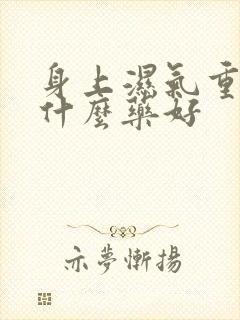 身上濕氣重
什麼藥好
亦夢慚揚